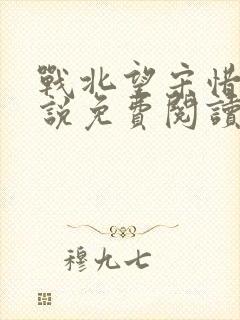 戰北望宋惜
說免費閱讀
穆九七